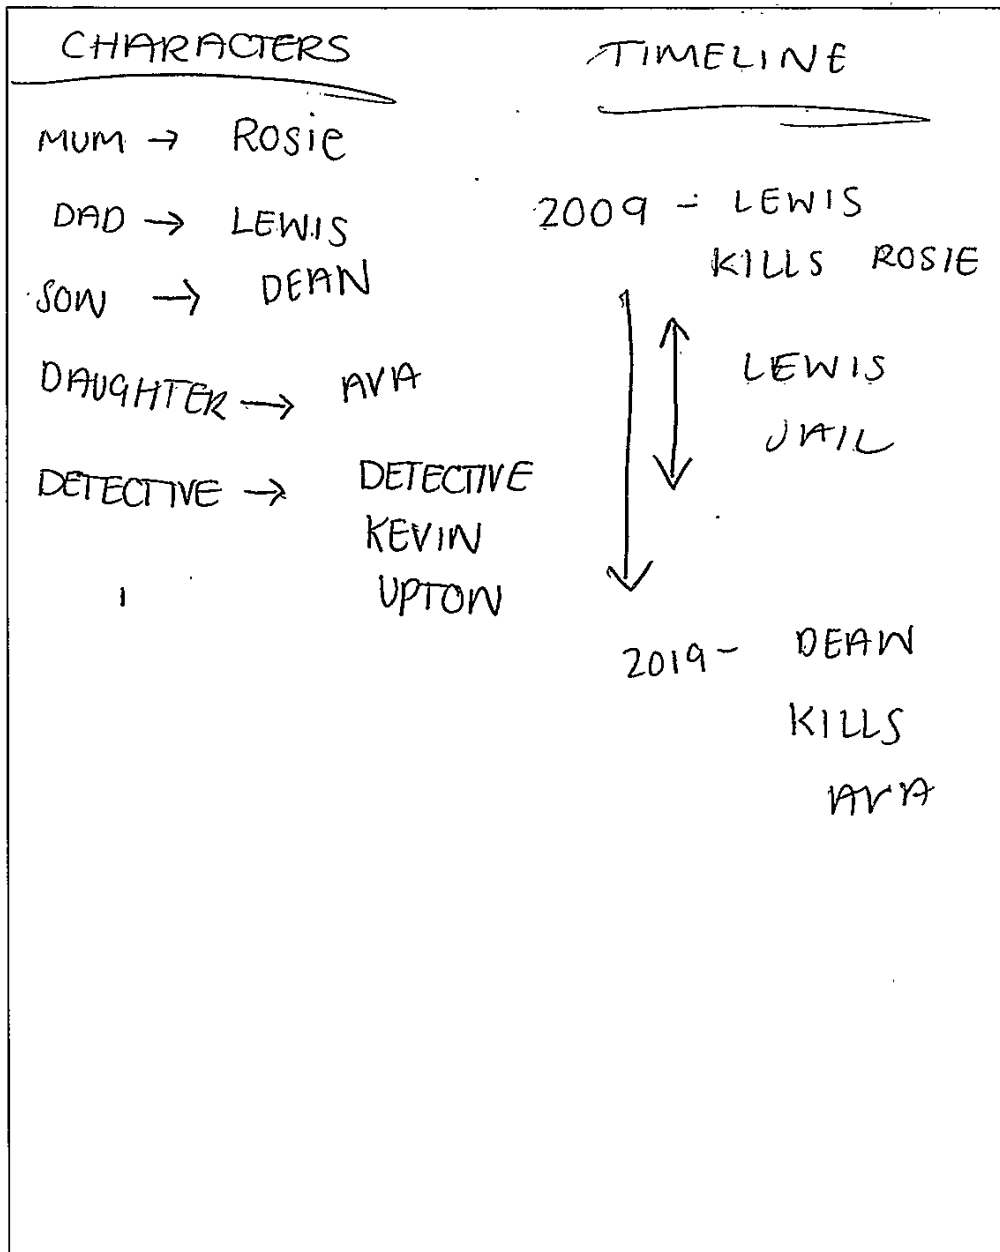 CHARACTERS
MUM → Rosie
DAD → LEWIS
SON → DEAN
DAUGHTER → AVA
DETECTIVE → DETECTIVE
KEVIN
UPTON
TIMELINE
2009 - LEWIS
KILLS ROSIE
LEWIS
JAIL
2019 - DEAN
KILLS
AVA